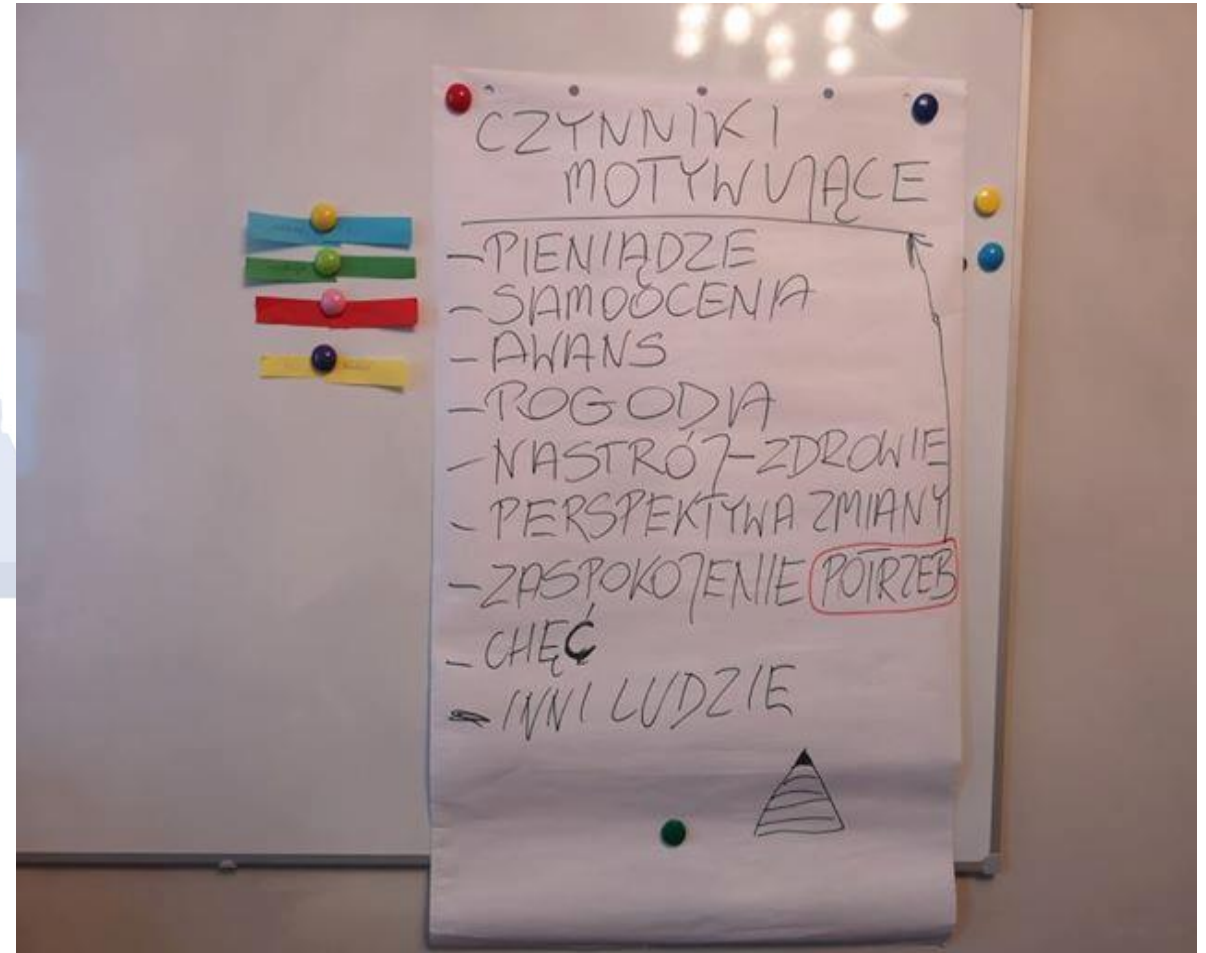 CZYNNIKI
MOTYWUJĄCE
- PIENIĄDZE
- SAMOOCENA
- AWANS
- POGODA
- NASTRÓJ - ZDROWIE
- PERSPEKTYWA ZMIANY
- ZASPOKOJENIE POTRZEB
- CHĘĆ
- INNI LUDZIE